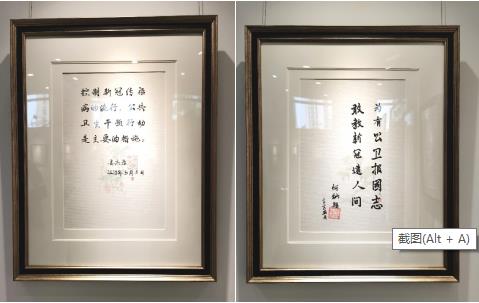 控制新冠传染
病的流行，公共
卫生干预行动
是主要的措施。
为有公卫报国志
敢教新冠 人间
截图(Alt + A)